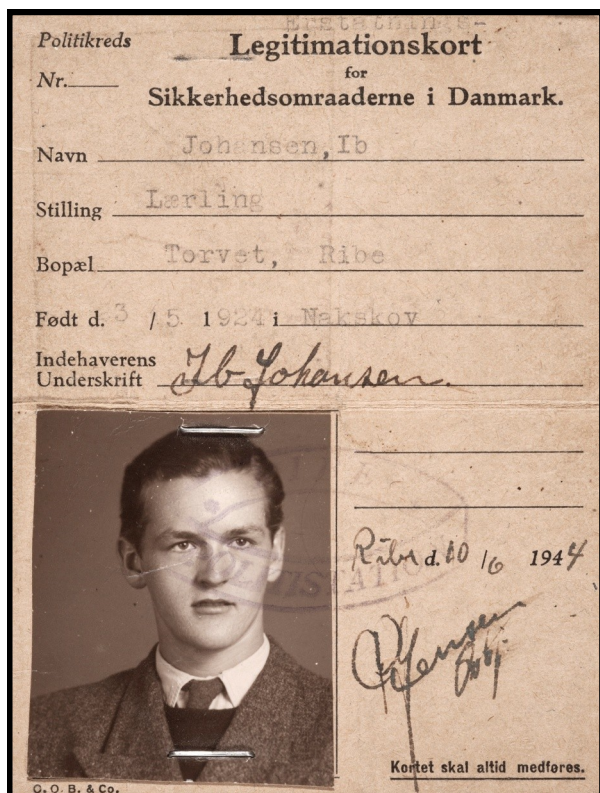 Erstatnings-
Politikreds
Legitimationskort
Nr.
for
Sikkerhedsomraaderne i Danmark.
Navn Johansen, Ib
Stilling Lærling
Bopæl Torvet, Ribe
Født d. 3 / 5 1924 i Nakskov
Indehaverens
Underskrift Ib Johansen.
Ribe d. 10 / 6 1944
Jensen
Kortet skal altid medføres.
O. O. B. & Co.